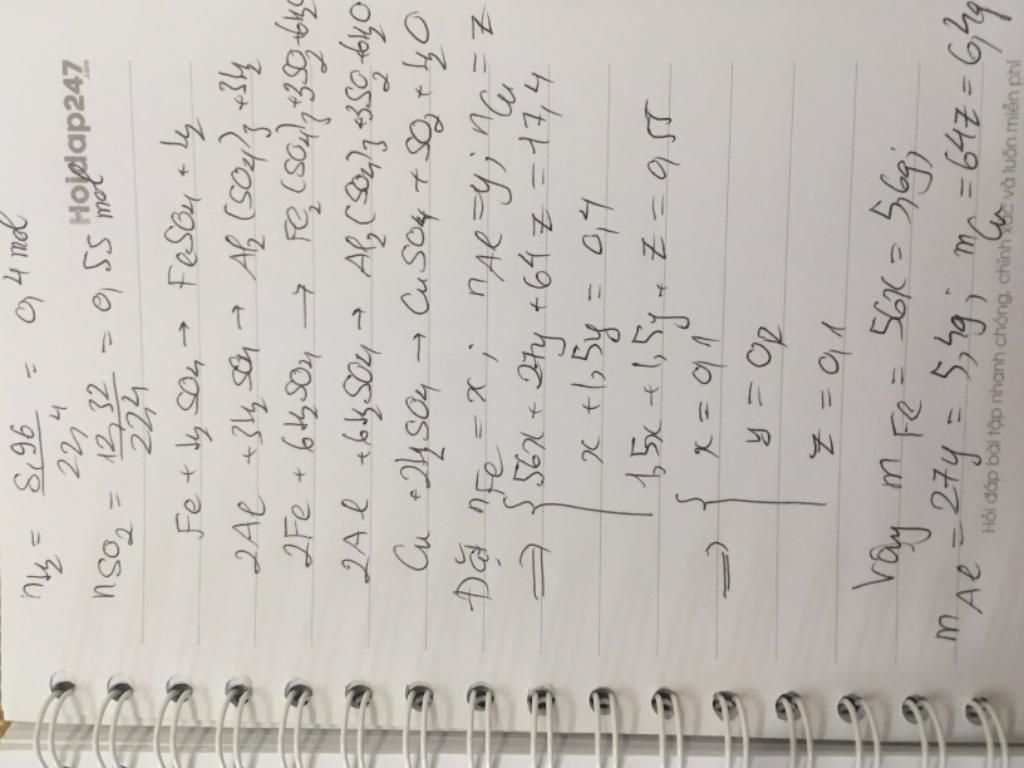 nH2 = 8,96/22,4 = 0,4 mol
Hoidap247.com
nSO2 = 12,32/22,4 = 0,55 mol
Fe + H2SO4 → FeSO4 + H2
2Al + 3H2SO4 → Al2(SO4)3 + 3H2
2Fe + 6H2SO4 → Fe2(SO4)3 + 3SO2 + 6H2O
2Al + 6H2SO4 → Al2(SO4)3 + 3SO2 + 6H2O
Cu + 2H2SO4 → CuSO4 + SO2 + H2O
Đặ nFe = x; nAl = y; nCu = z
=> { 56x + 27y + 64z = 17,4
x + 1,5y = 0,4
1,5x + 1,5y + z = 0,55
=> { x = 0,1
y = 0,2
z = 0,1
Vậy mFe = 56x = 5,6g;
mAl = 27y = 5,4g; mCu = 64z = 6,4g
Hỏi đáp bài tập nhanh chóng, chính xác và luôn miễn phí